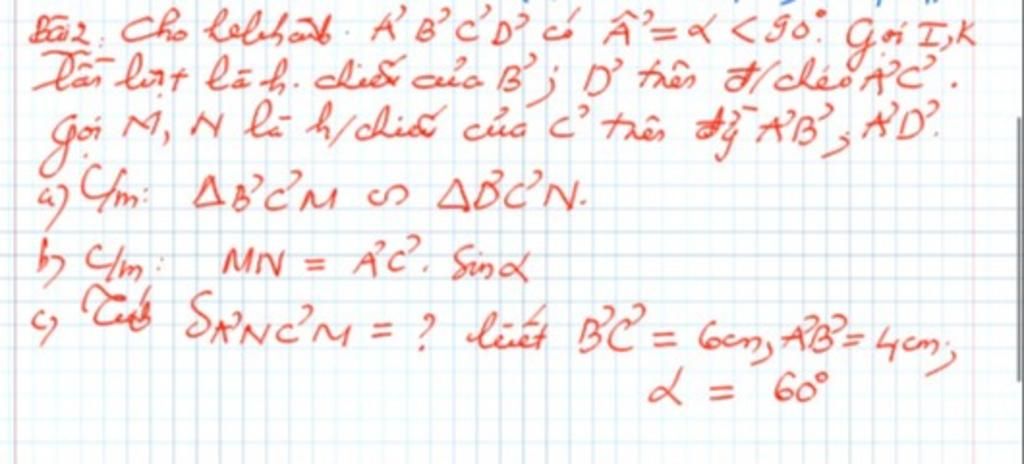 Bài 2: Cho hbhành A'B'C'D' có Â' = α < 90°. Gọi I, K
lần lượt là h. chiếu của B'; D' trên đ/chéo A'C'.
Gọi M, N là h/chiếu của C' trên đg A'B'; A'D'.
a) C/m: ΔB'C'M ∽ ΔD'C'N.
b) C/m: MN = A'C'. Sinα
c) Tính S A'NC'M = ? biết B'C' = 6cm, A'B' = 4cm;
α = 60°